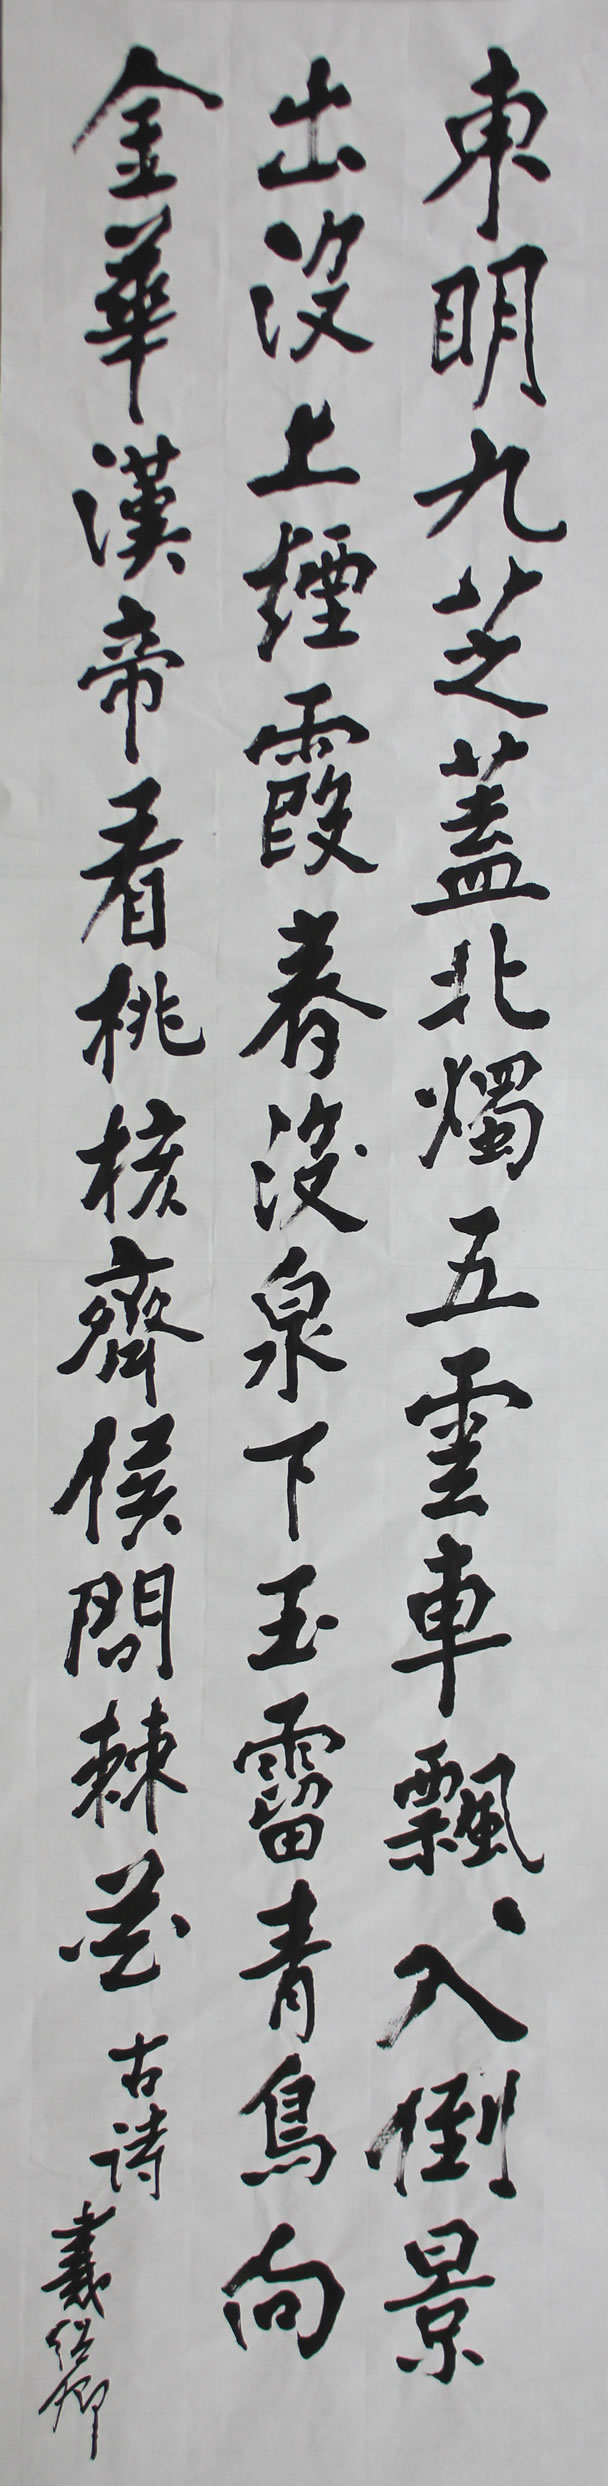 東明九芝蓋北燭五雲車飄、入倒景
出沒上煙霞春沒泉下玉霤青鳥向
金華漢帝看桃核齊侯問棘花
古詩